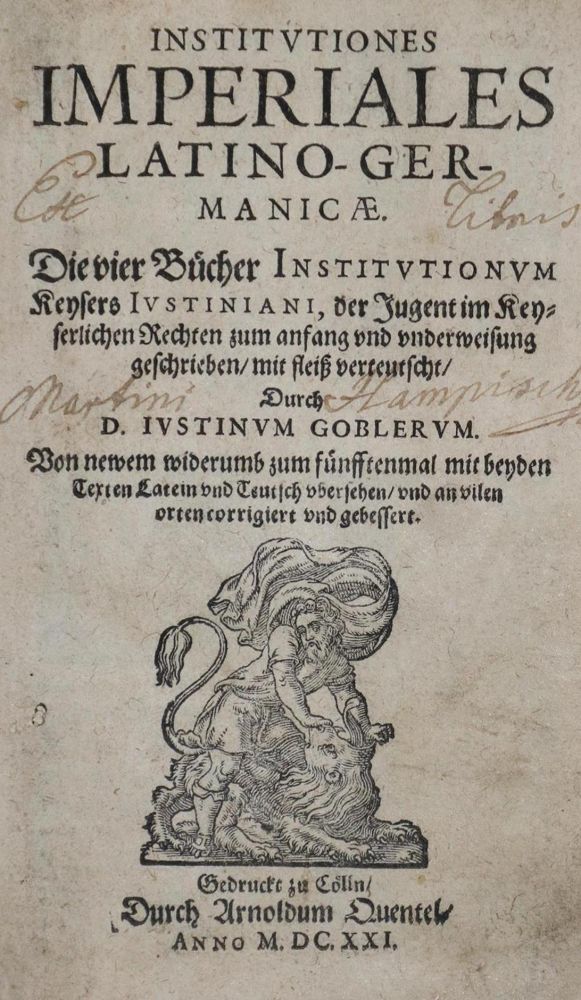 INSTITVTIONES
IMPERIALES
LATINO-GER-
MANICÆ.
Ex Libris
Die vier Bücher INSTITVTIONVM
Keysers IVSTINIANI, der Jugent im Key-
serlichen Rechten zum anfang vnd vnderweisung
geschrieben/ mit fleiß verteutscht/
Martini Hampisch
Durch
D. IVSTINVM GOBLERVM.
Von newem widerumb zum fünfftenmal mit beyden
Texten Latein vnd Teutsch vbersehen/ vnd an vilen
orten corrigiert vnd gebessert.
Gedruckt zu Cölln/
Durch Arnoldum Quentel/
ANNO M. DC. XXI.